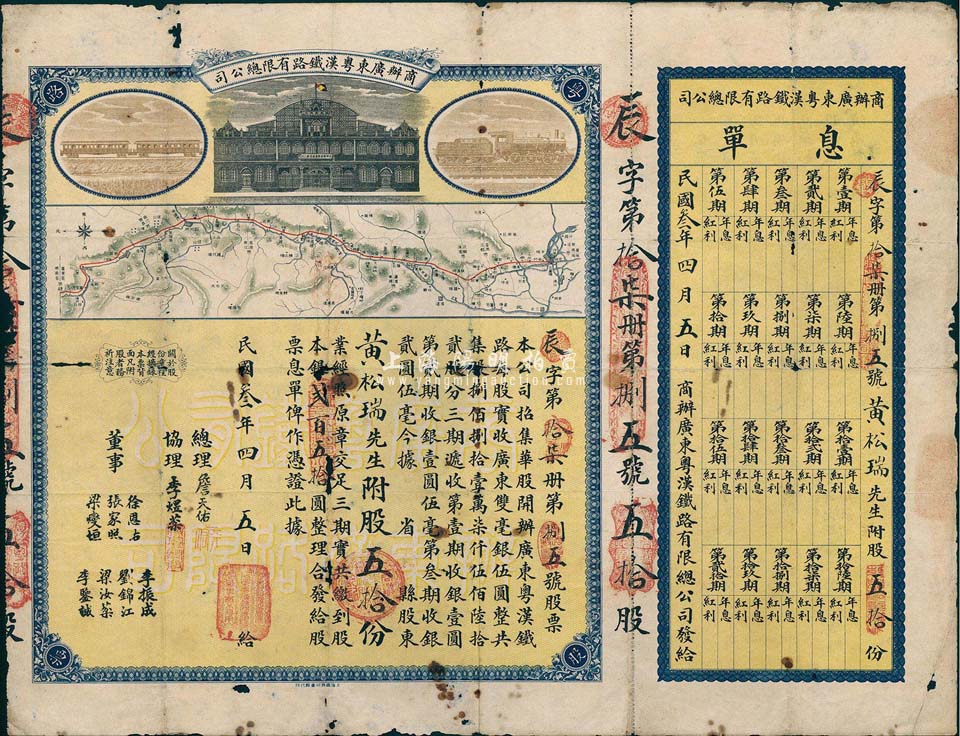 商辦廣東粵漢鐵路有限總公司
粵
股
辰字第拾柒册第捌五號股票
本公司招集華股開辦廣東粵漢鐵
路每股實收廣東雙毫銀伍圓整共
集股捌佰捌拾壹萬柒仟伍佰陸拾
貳股分三期遞收第壹期收銀壹圓
第貳期收銀壹圓伍毫第叁期收銀
貳圓伍毫今據 省 縣股東
黃松瑞先生附股五拾份
業經照原章交足三期實共繳到股
本銀貳百五拾圓整理合發給股
票息單俾作憑證此據
民國叁年四月五日 給
總理 詹天佑
協理 李煜芬
董事
徐恩古
張家照
梁燮垣
李振成
劉錦江
梁汝棻
李鑒誠
關於股
份章程
經撮錄
本票背
面凡附
股者務
祈注意
辰字第拾柒册第捌五號 五拾股
商辦廣東粵漢鐵路有限總公司
息單
辰字第拾柒册第捌五號黃松瑞先生附股五拾份
第壹期 年息 紅利
第陸期 年息 紅利
第拾壹期 年息 紅利
第拾陸期 年息 紅利
第貳期 年息 紅利
第柒期 年息 紅利
第拾貳期 年息 紅利
第拾柒期 年息 紅利
第叁期 年息 紅利
第捌期 年息 紅利
第拾叁期 年息 紅利
第拾捌期 年息 紅利
第肆期 年息 紅利
第玖期 年息 紅利
第拾肆期 年息 紅利
第拾玖期 年息 紅利
第伍期 年息 紅利
第拾期 年息 紅利
第拾伍期 年息 紅利
第貳拾期 年息 紅利
民國叁年四月五日 商辦廣東粵漢鐵路有限總公司發給
www.yangmingauction.com